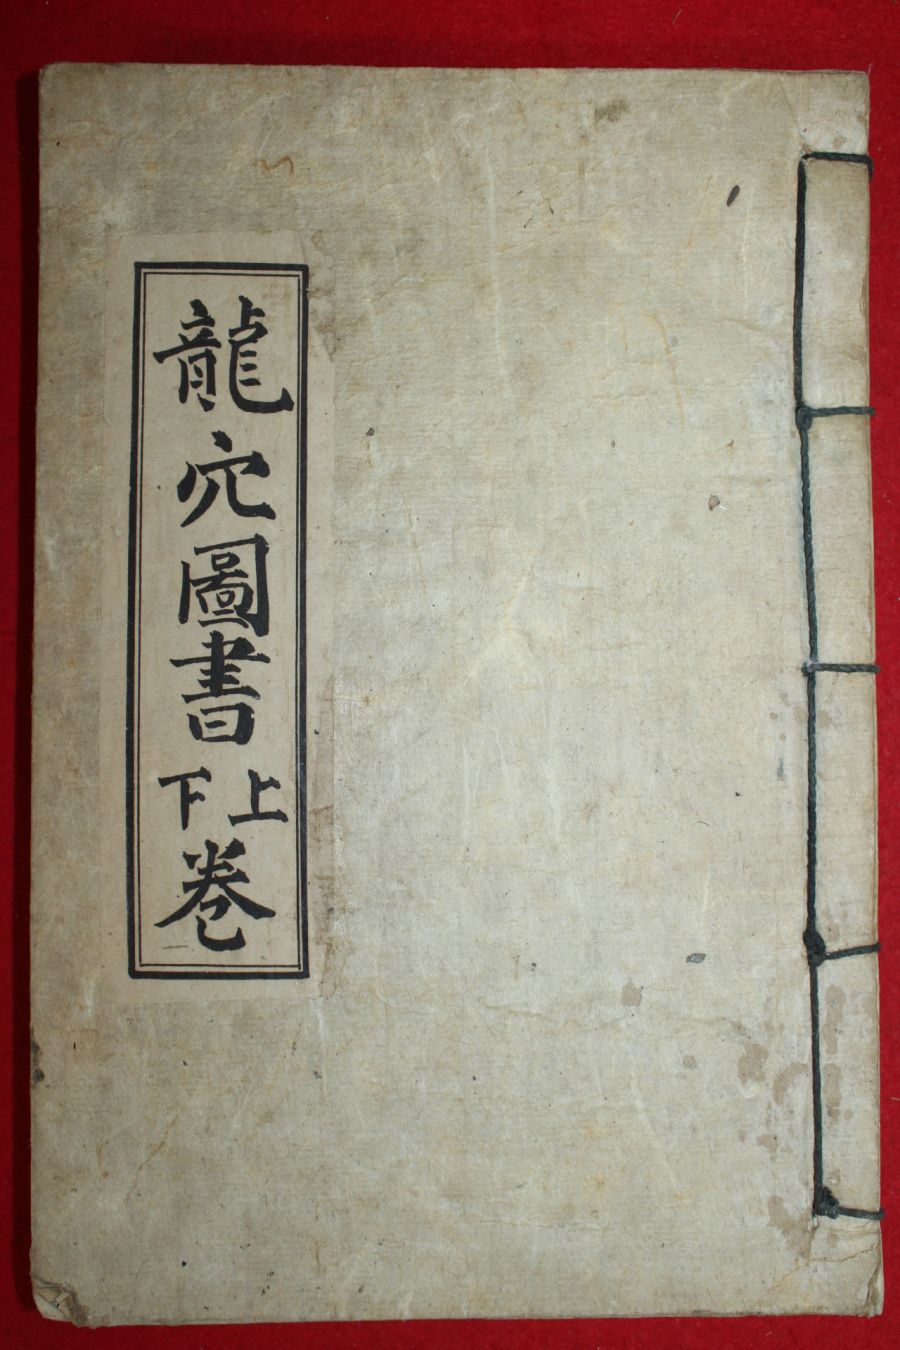 龍穴圖書上下巻